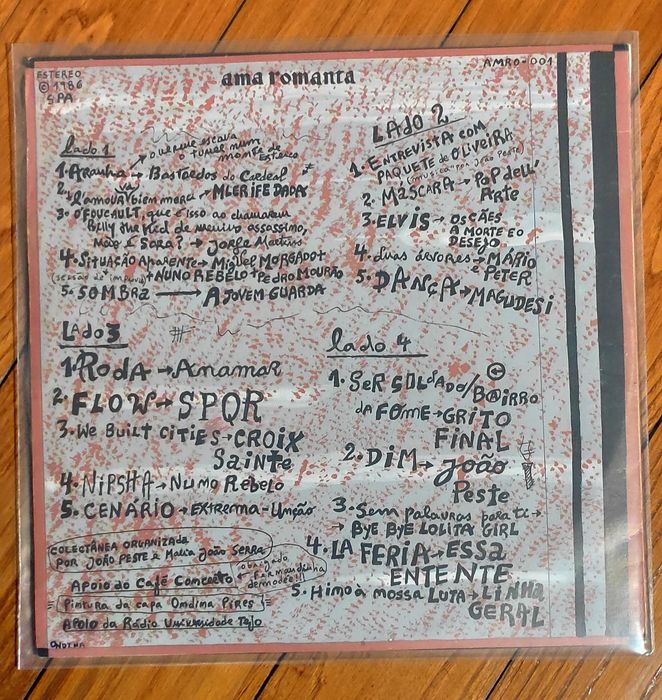 ESTEREO
© 1986
SPA
ama romanta
AMRO-001
lado 1
1. Aranha → Bastardos do Cardeal
2. l'amour va bien merci → MLER IFE DADA
3. O'FOUCAULT, que é isso ao chamarem
Billy the Kid de menino assassino,
não é Sora? → Jorge Martins
4. SITUAÇÃO APARENTE → Miguel MORGADO +
+ NUNO REBELO + PEDRO MOURÃO
5. SOMBRA → A JOVEM GUARDA
LADO 2
1. ENTREVISTA COM
PAQUETE de OLIVEIRA
("musica" por João Peste)
2. MÁSCARA → POP dell'
Arte
3. ELVIS → OS CÃES
A MORTE E O
DESEJO
4. duas árvores → MÁRIO
e PETER
5. DANÇA → MAGUDESI
LADO 3
1. RODA → Anamar
2. FLOW → SPQR
3. We BUILT CITIES → CROIX
Sainte
4. NIPSHA → Nuno Rebelo
5. CENÁRIO → EXTREMA-UNÇÃO
lado 4
1. SER SOLDADO / B@IRRO
da FOME → GRITO
FINAL
2. DIM → JOÃO
Peste
3. Sem Palavras para ti →
→ BYE BYE LOLITA GIRL
4. LA FERIA → ESSA
ENTENTE
5. Hino à nossa LUTA → LINHA
GERAL
COLECTÂNEA ORGANIZADA
POR JOÃO PESTE E Maria João SERRA
Apoio do Café Concreto
obrigado
Fernandinha
demodée!!!
Pintura da capa Ondina Pires
APOIO da Rádio Universidade Tejo
ONDINA